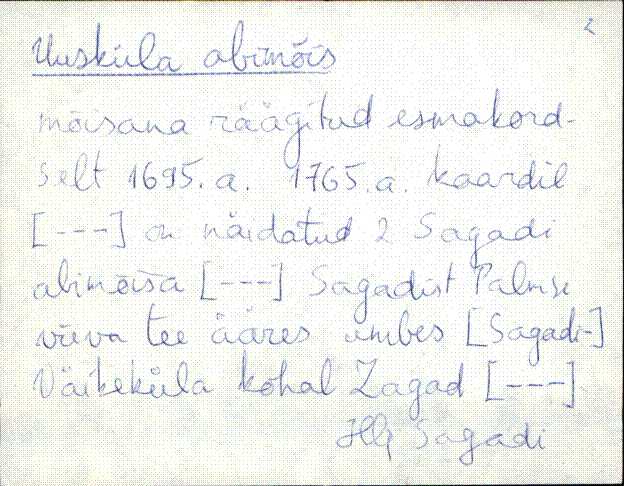 2
Uusküla abimõis
mõisana räägitud esmakord-
selt 1695.a. 1765.a. kaardil
[---] on näidatud 2 Sagadi
abimõisa [---] Sagadist Palmse
viiva tee ääres umbes [Sagadi-]
Väikeküla kohal Zagad [---]
Hlj Sagadi